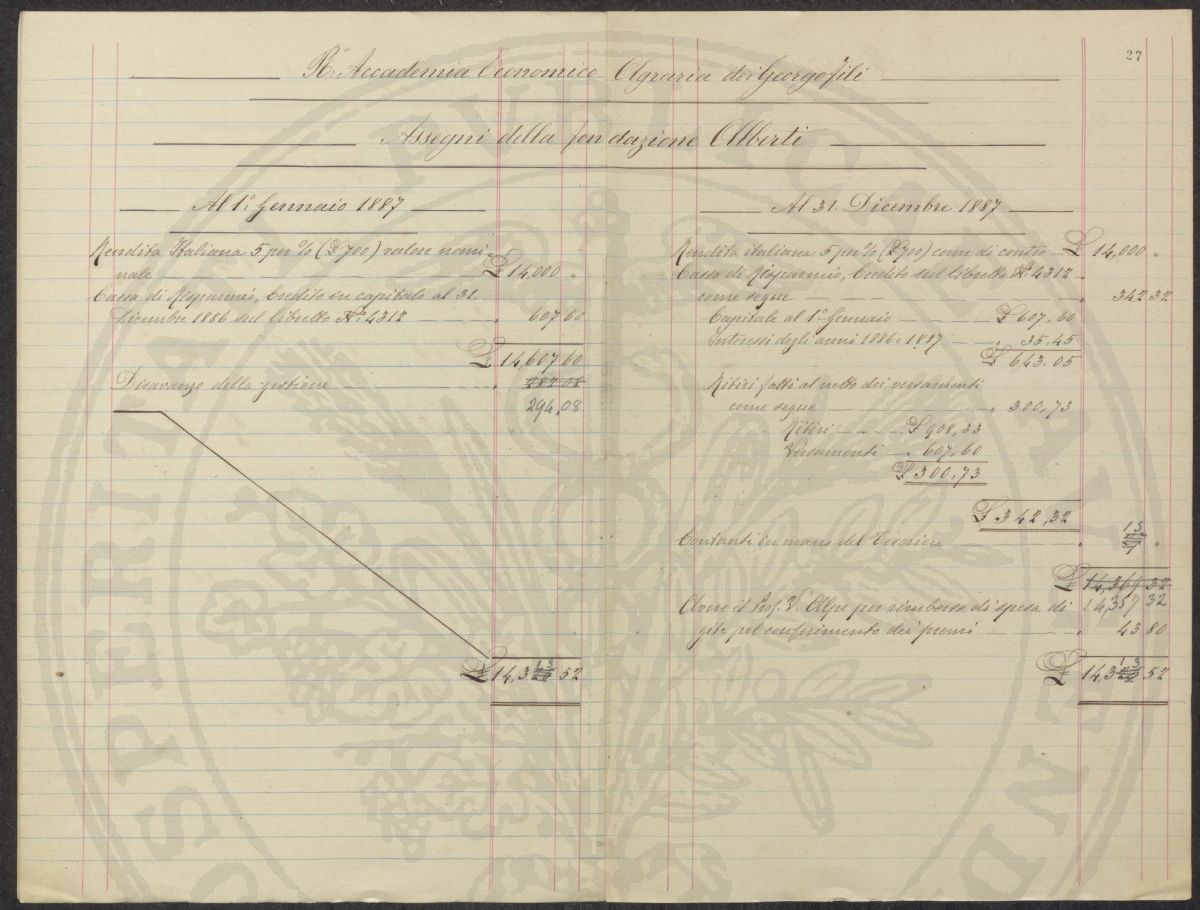 27
Rª. Accademia Economico Agraria dei Georgofili
Assegni della fondazione Alberti
Al 1º. Gennaio 1887
Rendita Italiana 5 per % (£ 700) valore nomi-
nale £ 14,000 "
Cassa di Risparmio, Credito in capitale al 31.
Dicembre 1886 sul libretto Nº. 4312 " 607 60
£ 14,607 60
Disavanzo della gestione "
294,08
£ 14,313 52
Al 31. Dicembre 1887
Rendita italiana 5 per % (£ 700) come di contro £ 14,000 "
Cassa di Risparmio, Credito sul libretto Nº. 4312
come segue " 342 32
Capitale al 1º. Gennaio £ 607.60
Interessi degli anni 1886 e 1887 " 35.45
£ 643.05
Ritiri fatti al netto dei versamenti
come segue " 300,73
Ritiri £ 908,33
Versamenti " 607,60
£ 300,73
£ 342,32
Contanti in mano del Tesoriere " 15 "
£ 14,369 32
14,357 32
Avere il Prof. V. Alpe per rimborso di spesa di
gite pel conferimento dei premi " 43 80
£ 14,313 52
SPERITNA PVBLICSE